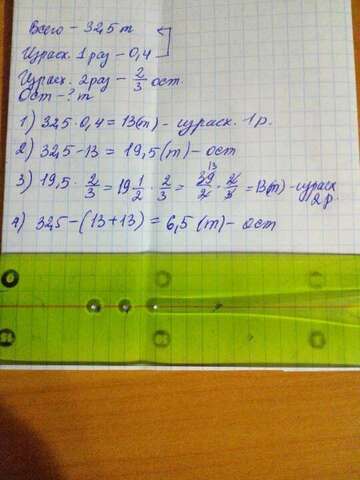 Всего - 32,5 т
Израсх. 1 раз - 0,4
Израсх. 2 раз - 2/3 ост.
Ост - ? т
1) 32,5 · 0,4 = 13(т) - израсх. 1 р.
2) 32,5 - 13 = 19,5 (т) - ост
3) 19,5 · 2/3 = 19 1/2 · 2/3 = 39/2 · 2/3 = 13(т) - израсх 2р.
13
4) 32,5 - (13 + 13) = 6,5 (т) - ост